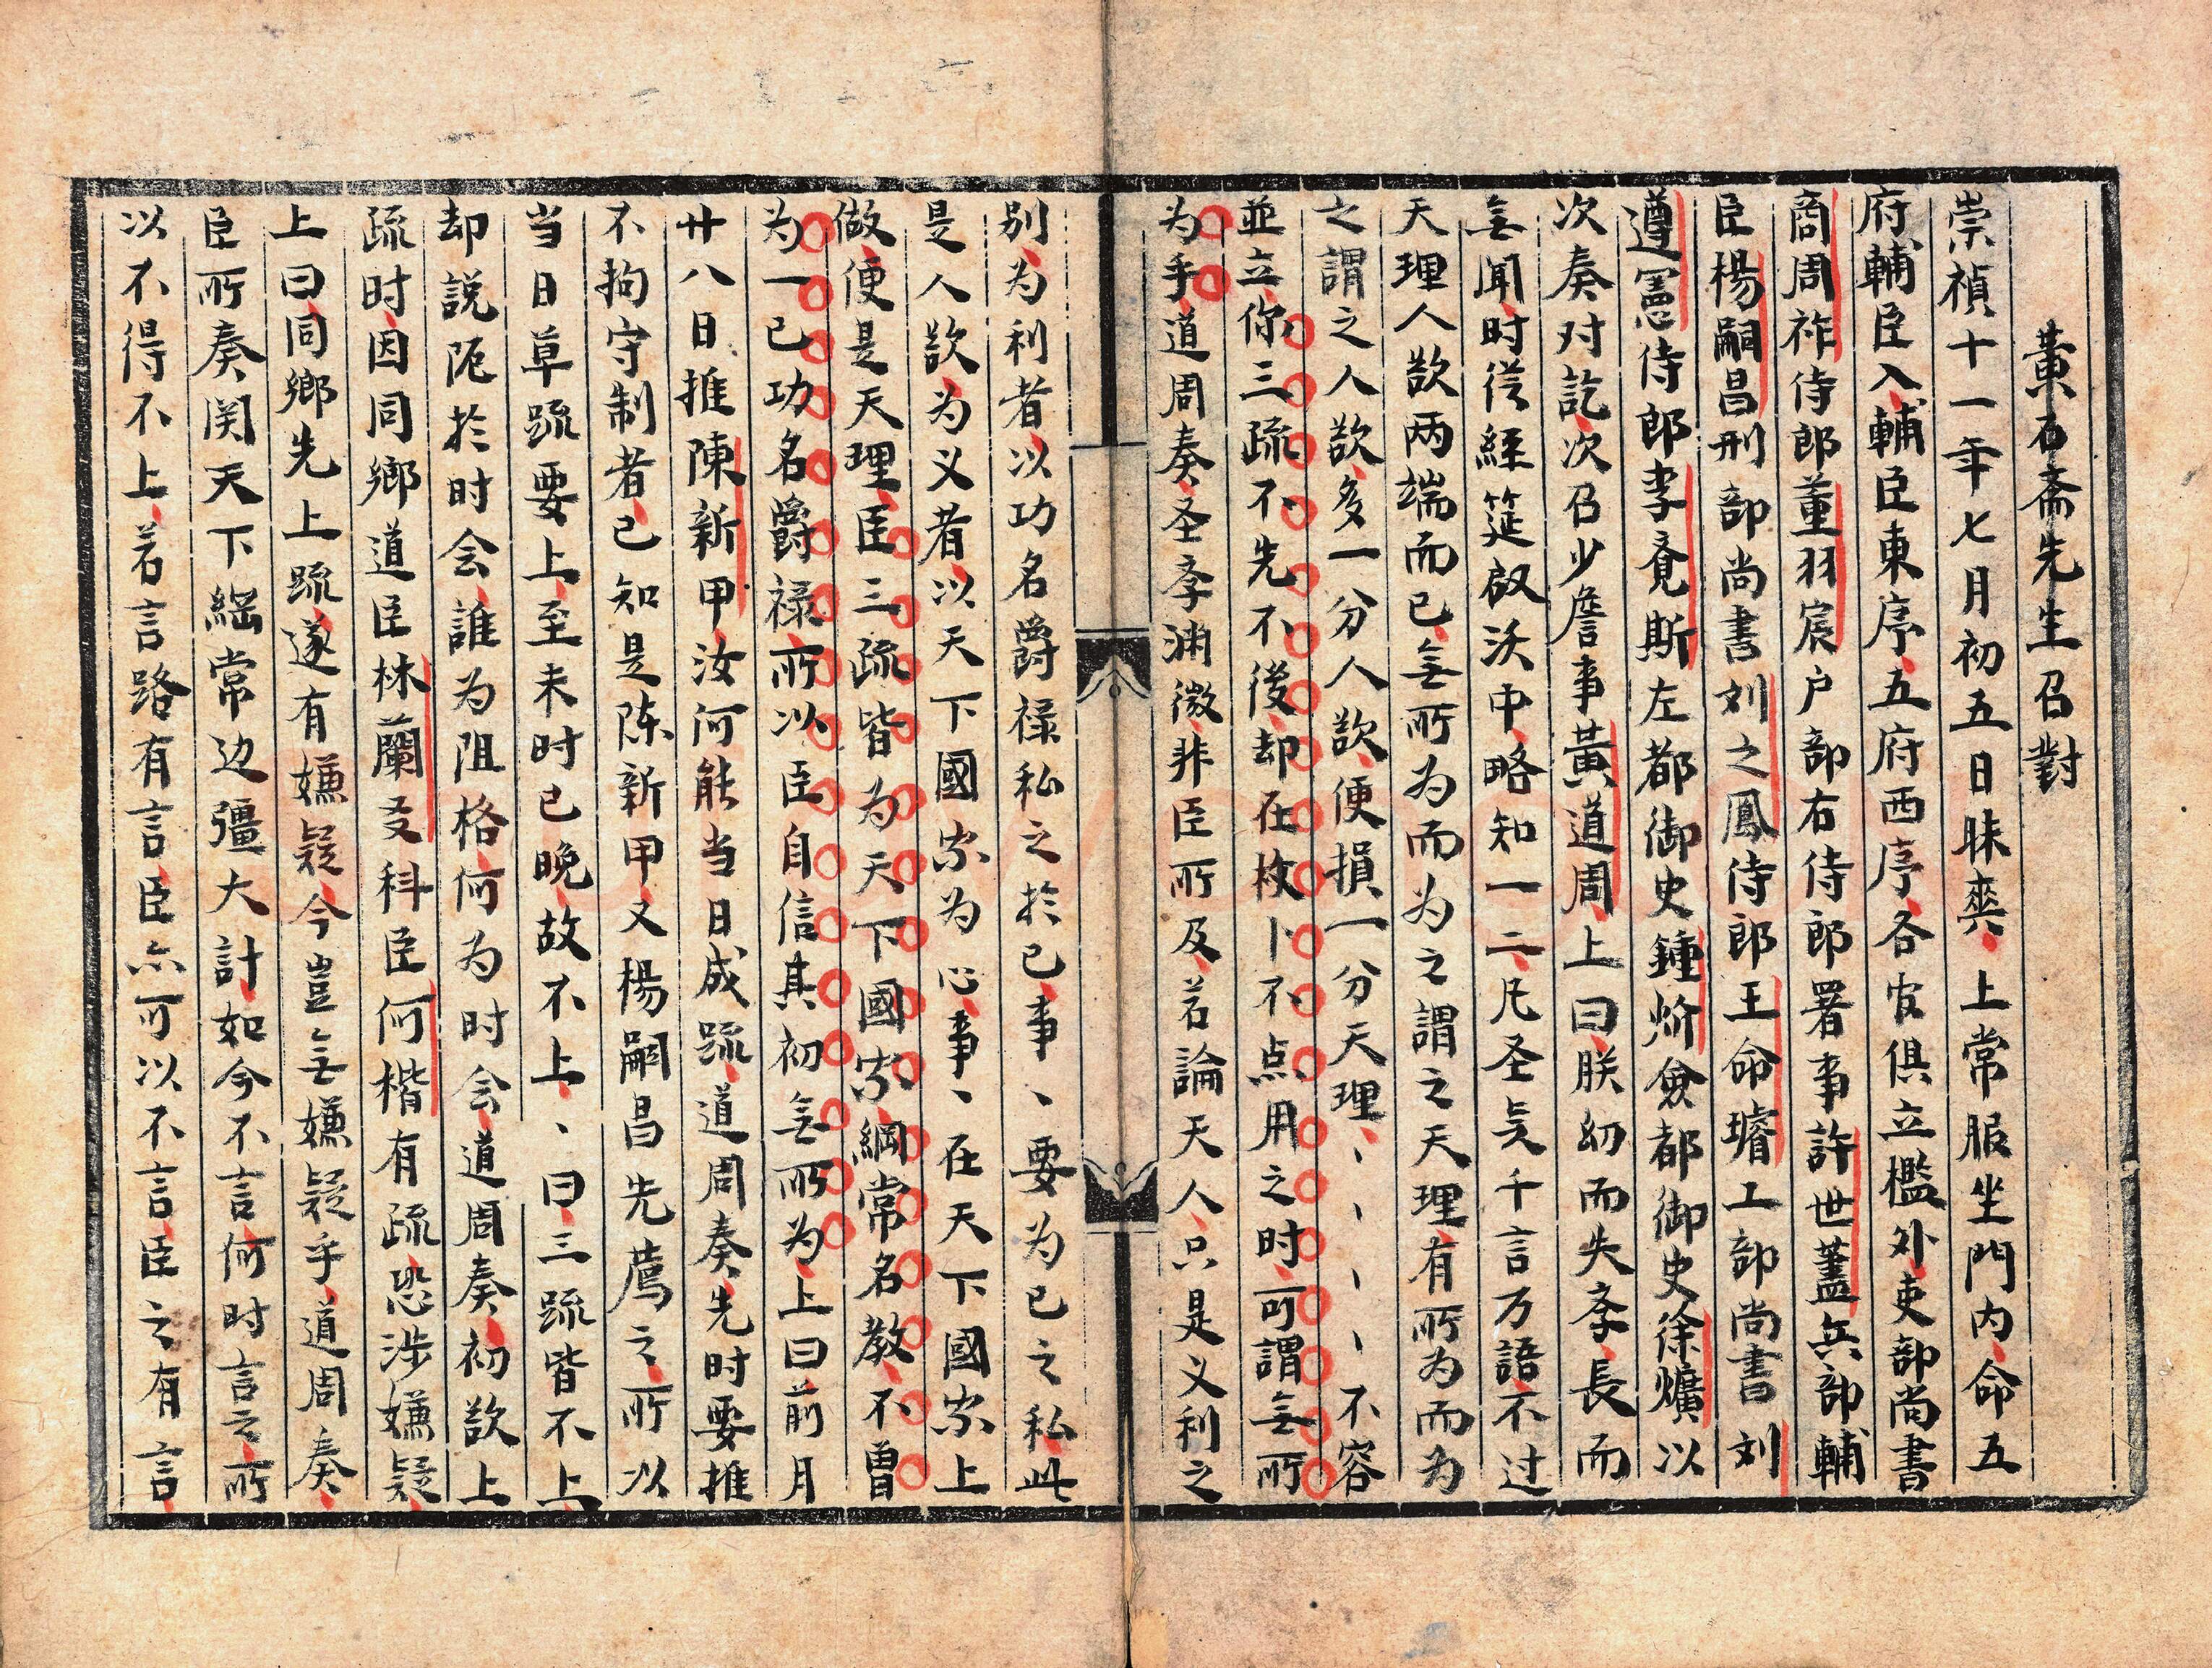 黃石斎先生召對
崇禎十一年七月初五日昧爽上常服坐門內命五
府輔臣入輔臣東序五府西序各官俱立檻外吏部尚書
商周祚侍郎董羽宸户部右侍郎署事許世藎兵部輔
臣楊嗣昌刑部尚書刘之鳳侍郎王命璿工部尚書刘
遵憲侍郎李覔斯左都御史鍾炌僉都御史徐爌以
次奏对訖次召少詹事黃道周上曰朕幼而失李長而
無闻时従經筵啟沃中略知一二凡圣贤千言万語不过
天理人欲两端而已無所为而为之謂之天理有所为而为
之謂之人欲多一分人欲便損一分天理丶丶丶丶不容
並立你三疏不先不後却在枚卜不点用之时可謂無所
为乎道周奏圣孝渊微非臣所及若論天人只是义利之
别为利者以功名爵禄私之於已事丶要为已之私此
是人欲为义者以天下國家为心事丶在天下國家上
做便是天理臣三疏皆为天下國家綱常名教不曾
为一已功名爵禄所以臣自信其初無所为上曰前月
廿八日推陳新甲汝何能当日成疏道周奏先时要推
不拘守制者已知是陈新甲又楊嗣昌先薦之所以
当日草疏要上至未时已晚故不上丶曰三疏皆不上
却説阨於时会誰为阻格何为时会道周奏初欲上
疏时因同鄉道臣林蘭友科臣何楷有疏恐涉嫌疑
上曰同鄉先上疏遂有嫌疑今豈無嫌疑乎道周奏
臣所奏関天下綱常边疆大計如今不言何时言之所
以不得不上若言路有言臣亦可以不言臣之有言